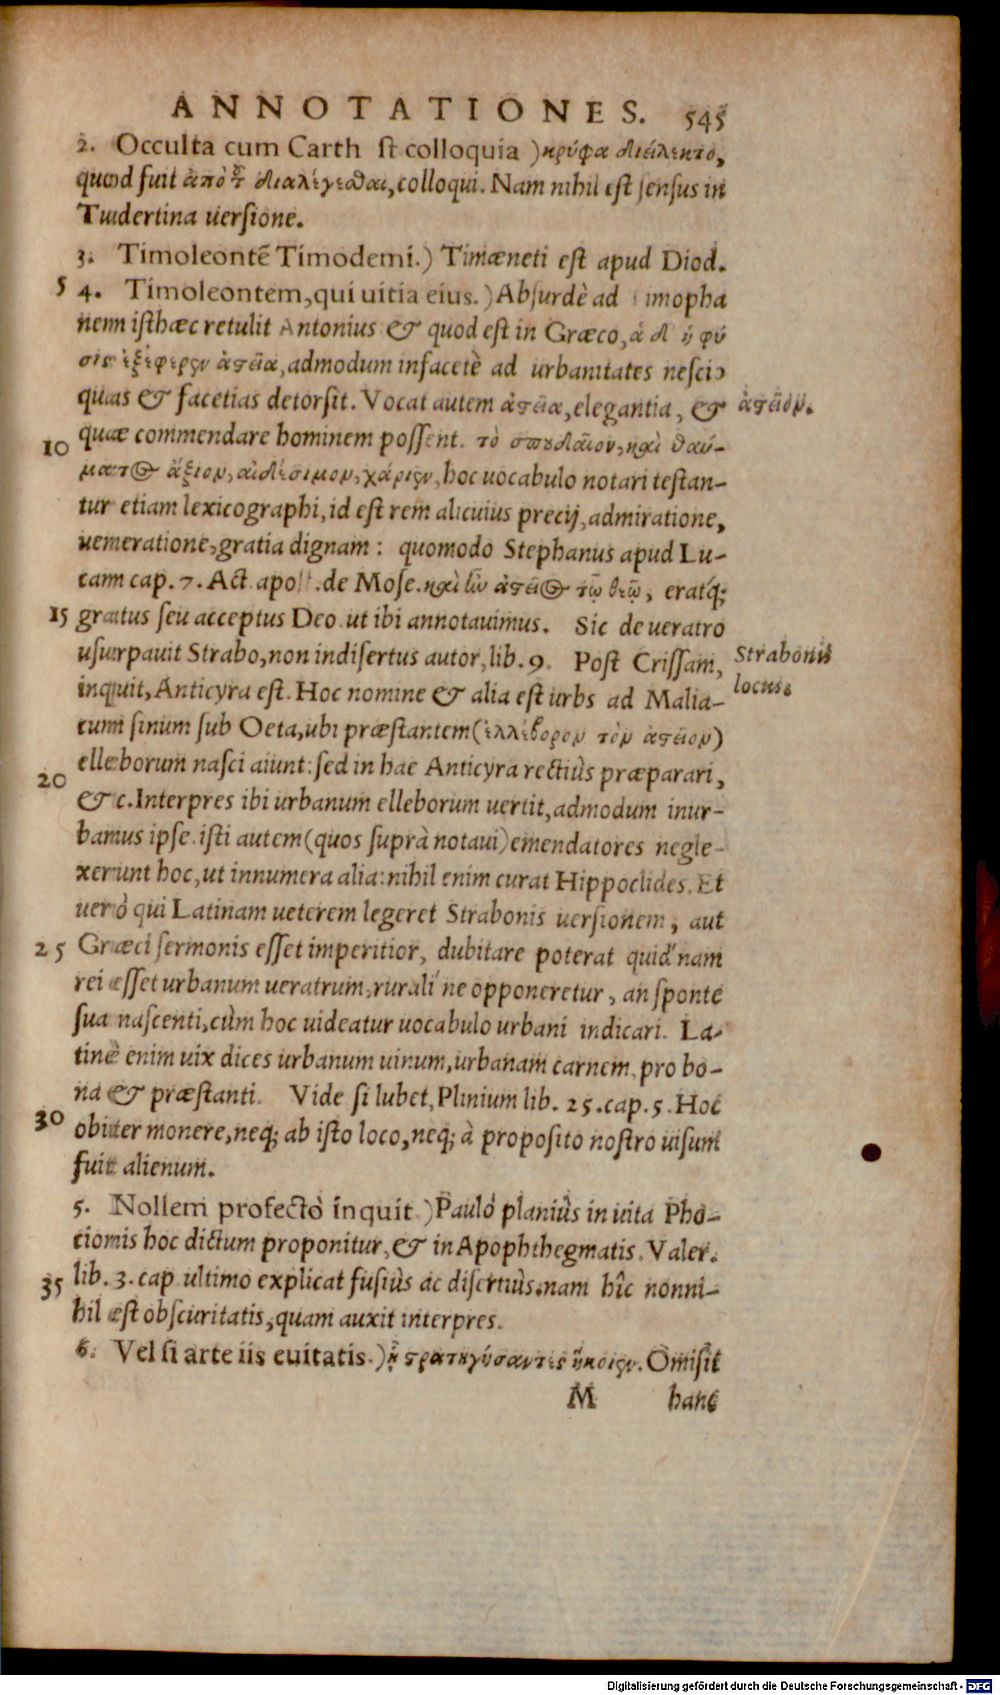 ANNOTATIONES. 545
2. Occulta cum Carth st colloquia )κρύφα διελέκτο,
quod fuit ἀπὸ τ διαλέγεσθαι, colloqui. Nam nihil est sensus in
Tudertina uersione.
3. Timoleontē Timodemi.) Timæneti est apud Diod.
5 4. Timoleontem, qui uitia eius.) Absurdè ad imopha
nem isthæc retulit Antonius & quod est in Græco, φύ
σις ἐξέφερεν ἀστεῖα, admodum infacetè ad urbanitates nescio
quas & facetias detorsit. Vocat autem ἀστεῖα, elegantia, & ἀστεῖον.
10 quæ commendare hominem possent. τὸ σπουδαῖον, καὶ θαύ-
ματος ἄξιον, αἰδέσιμον, χάριεν, hoc uocabulo notari testan-
tur etiam lexicographi, id est rem alicuius precij, admiratione,
ueneratione, gratia dignam: quomodo Stephanus apud Lu-
cam cap. 7. Act. apost. de Mose. καὶ ἦν ἀστεῖος τῷ θεῷ, eratq́;
15 gratus seu acceptus Deo. ut ibi annotauimus. Sic de ueratro
usurpauit Strabo, non indisertus autor, lib. 9. Post Crissam, Strabonis
inquit, Anticyra est. Hoc nomine & alia est urbs ad Malia- locus.
cum sinum sub Oeta, ubi præstantem (ἑλλέβορον τὸν ἀστεῖον)
20 elleborum nasci aiunt: sed in hac Anticyra rectiùs præparari,
&c. Interpres ibi urbanum elleborum uertit, admodum inur-
banus ipse. isti autem (quos suprà notaui) emendatores negle-
xerunt hoc, ut innumera alia: nihil enim curat Hippoclides. Et
uerò qui Latinam ueterem legeret Strabonis uersionem, aut
25 Græci sermonis esset imperitior, dubitare poterat quid nam
rei esset urbanum ueratrum, rurali ne opponeretur, an sponte
sua nascenti, cùm hoc uideatur uocabulo urbani indicari. La-
tinè enim uix dices urbanum uinum, urbanam carnem, pro bo-
na & præstanti. Vide si lubet, Plinium lib. 25. cap. 5. Hoc
30 obiter monere, neq; ab isto loco, neq; à proposito nostro uisum
fuit alienum.
5. Nollem profectò inquit.) Paulò planiùs in uita Pho-
cionis hoc dictum proponitur, & in Apophthegmatis. Valer.
35 lib. 3. cap. ultimo explicat fusiùs ac disertiùs. nam hîc nonni-
hil est obscuritatis, quam auxit interpres.
6. Vel si arte iis euitatis.) ἢ στρατηγήσαντες ἥκοιεν. Omisit
M hanc
Digitalisierung gefördert durch die Deutsche Forschungsgemeinschaft - DFG